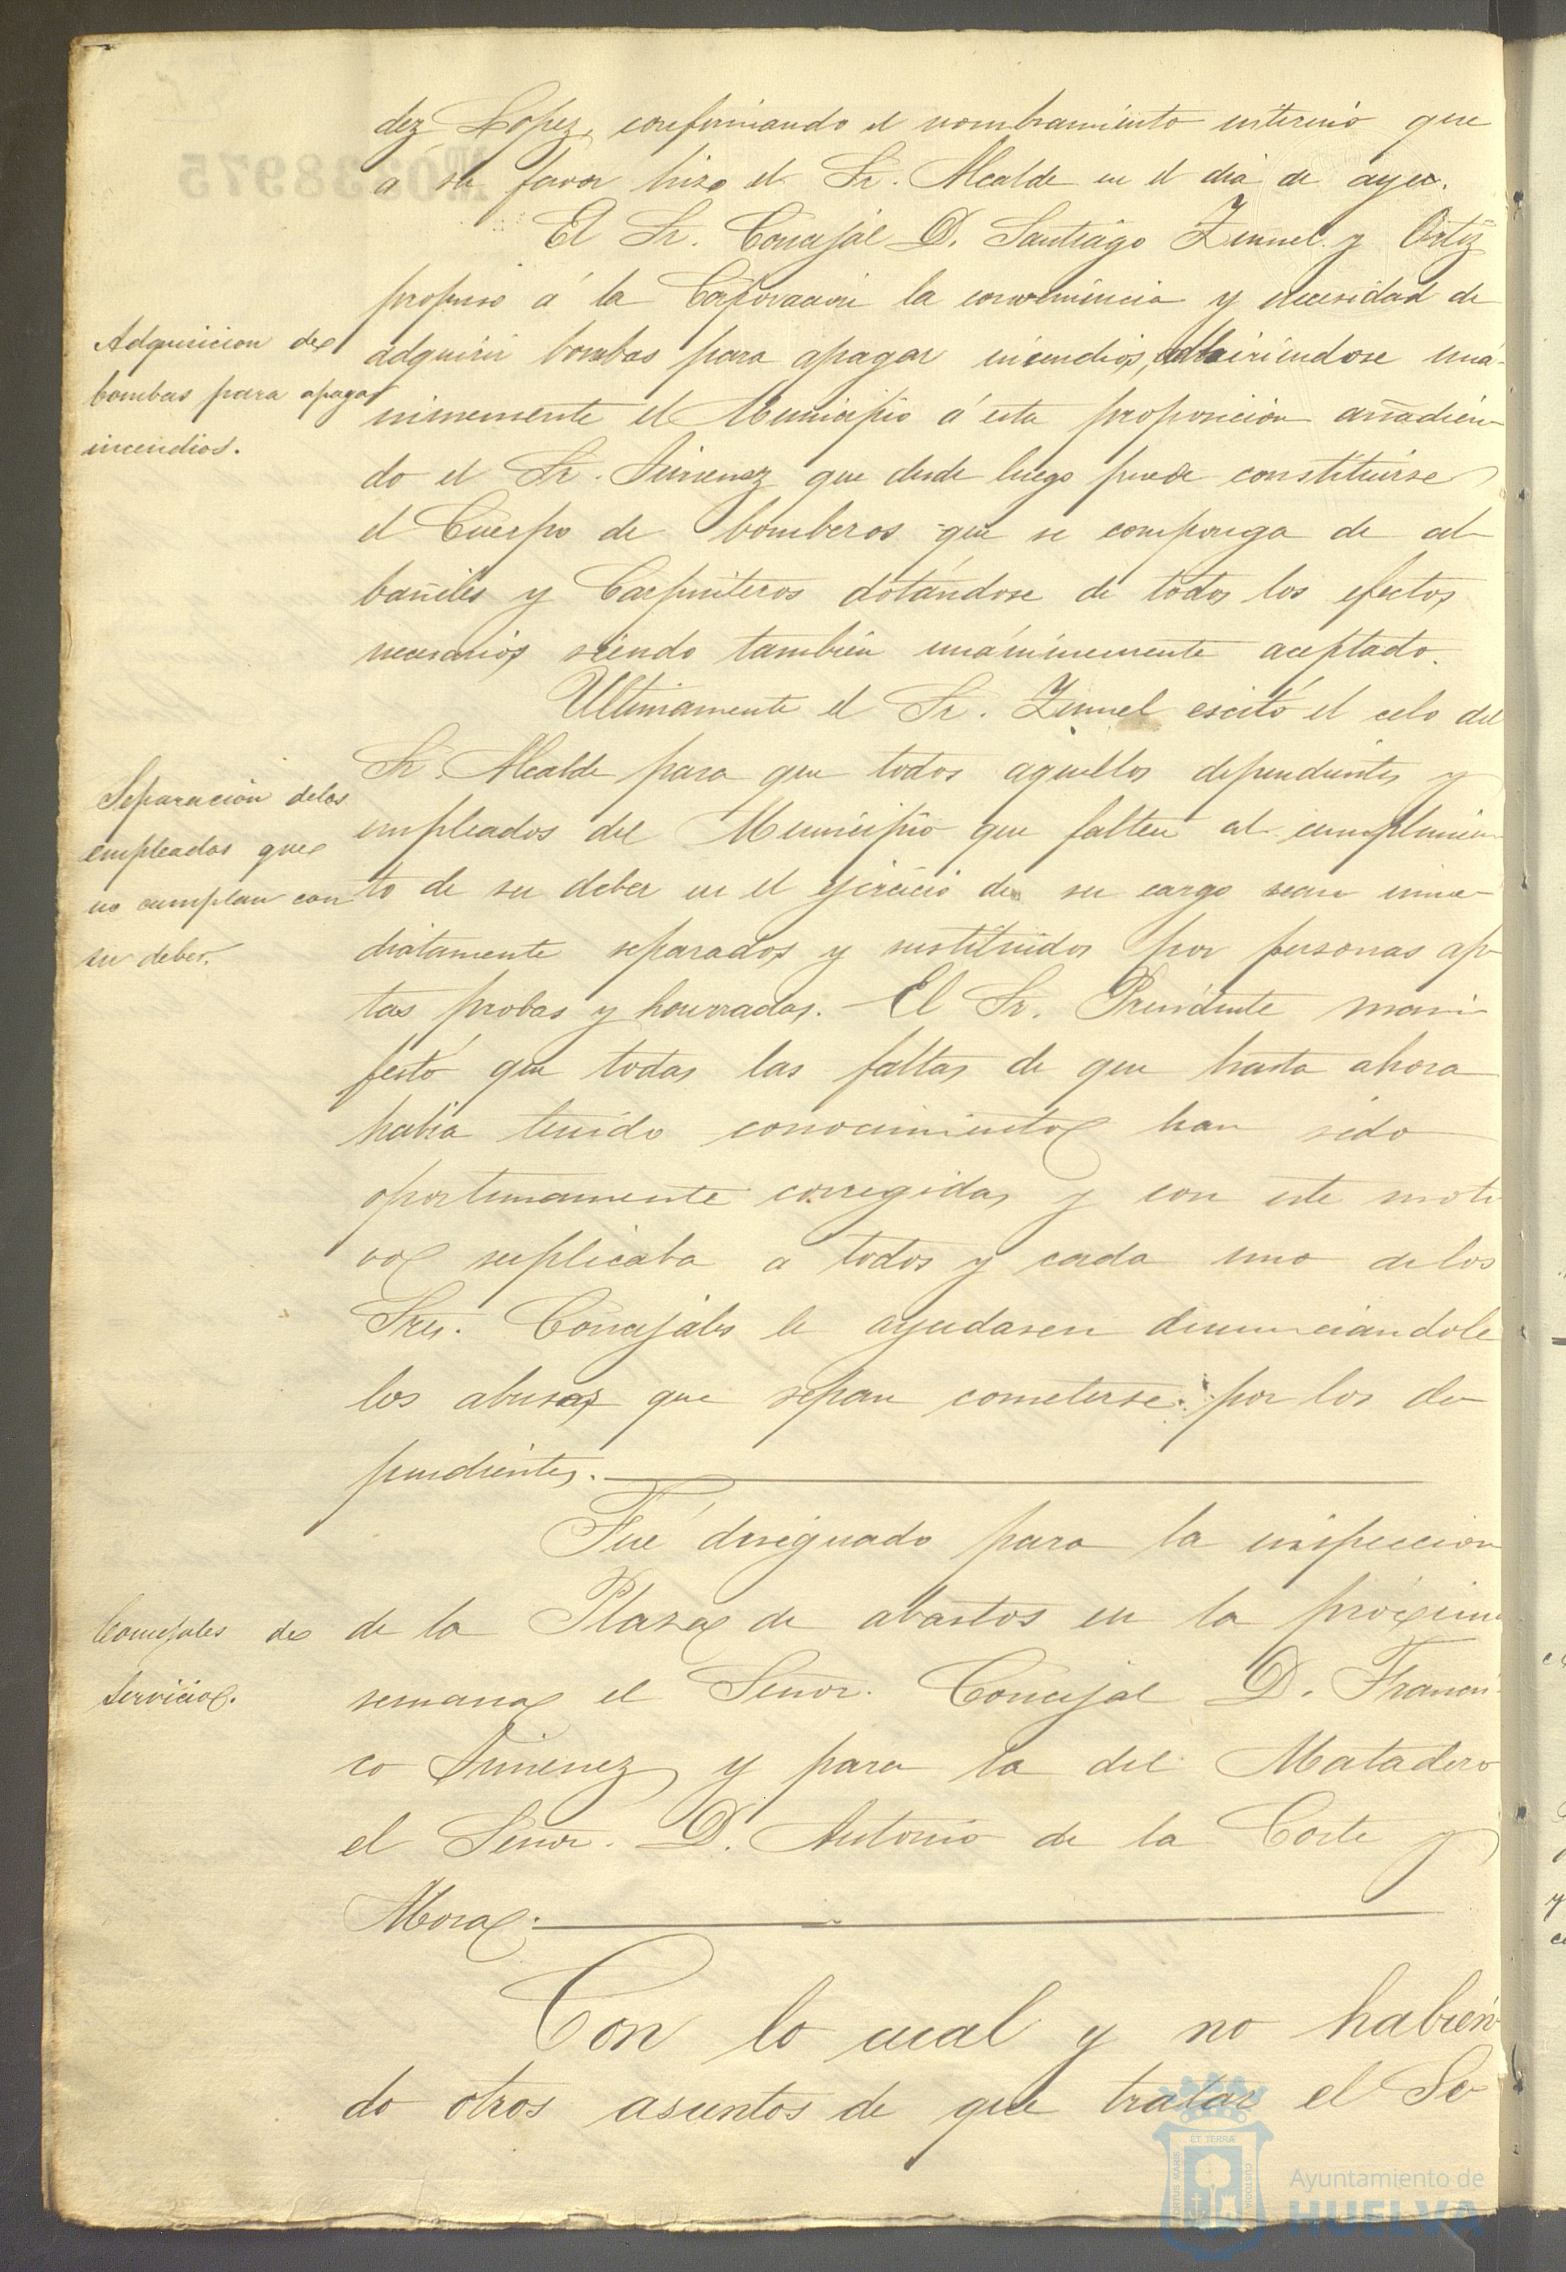 dez Lopez, confirmando el nombramiento interino que
á su favor hizo el Sr. Alcalde en el dia de ayer.
El Sr. Concejal D. Santiago Zunnel y Ortiz
propuso á la Corporacion la conveniencia y necesidad de
Adquisicion de
adquirir bombas para apagar incendios, adhiriendose uná-
bombas para apagar
nimemente el Municipio á esta proposicion añadien-
incendios.
do el Sr. Jimenez que desde luego puede constituirse
el Cuerpo de bomberos que se componga de al-
bañiles y Carpinteros dotándose de todos los efectos
necesarios siendo tambien unánimemente aceptado.
Ultimamente el Sr. Zunnel escitó el celo del
Sr. Alcalde para que todos aquellos dependientes y
Separacion delos
empleados del Municipio que falten al cumplimien-
empleados que
to de su deber en el ejercicio de su cargo sean inme-
no cumplan con
diatamente separados y sustituidos por personas ap-
su deber.
tas probas y honrradas. El Sr. Presidente mani-
festó que todas las faltas de que hasta ahora
habia tenido conocimiento han sido
oportunamente corregidas y con este moti
vo suplicaba a todos y cada uno delos
Sres. Concejales le ayudasen denunciandole
los abusos que sepan cometerse por los de-
pendientes.
Fué designado para la inspeccion
Concejales de
de la Plaza de abastos en la próxima
servicio.
semana el Señor Concejal D. Francis-
co Jimenez y para la del Matadero
el Señor D. Antonio de la Corte y
Mora.
Con lo cual y no habien
do otros asuntos de que tratar el Se-
ET TERRÆ
PORTUS MARIS
CUSTODIA
Ayuntamiento de
HUELVA